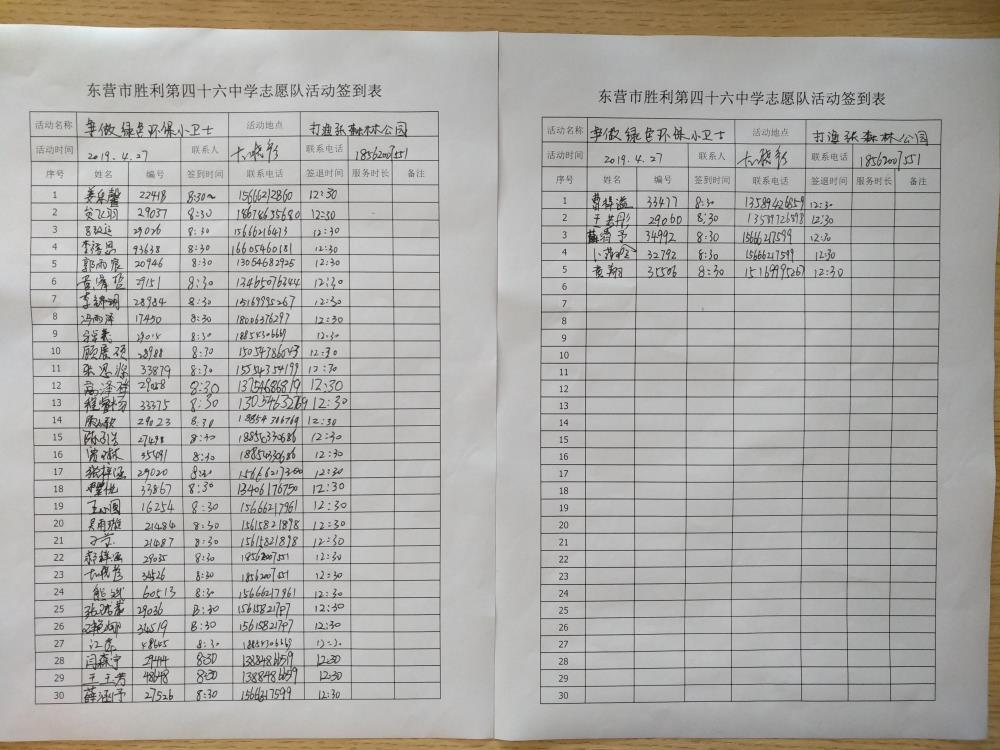 东营市胜利第四十六中学志愿队活动签到表
活动名称 争做绿色环保小卫士 活动地点 打渔张森林公园
活动时间 2019.4.27 联系人 联系电话 18562007551
序号 姓名 编号 签到时间 联系电话 签退时间 服务时长 备注
1 姜乐馨 22418 8:30~ 15666212860 12:30
2 29037 8:30 18678635680 12:30
3 29026 8:30 15666216473 12:30
4 93638 8:30 16605460181 12:30
5 郭雨宸 20946 8:30 13054682925 12:30
6 29151 8:30 13465076344 12:30
7 28984 8:30 15169995267 12:30
8 冯雨泽 17450 8:30 18006376297 12:30
9 8:30 18854306669 12:30
10 顾展硕 28988 8:30 15054786043 12:30
11 33879 8:30 15554354199
12 高泽 29058 8:30 13754686819 12:30
13 程睿扬 33375 8:30 13054632769 12:30
14 29023 8:30 12:30
15 27498 8:30 18854330686 12:30
16 35491 8:30 18854330686 12:30
17 张梓涵 29020 8:30 15666217300 12:30
18 33867 8:30 13406176750 12:30
19 王心圆 16254 8:30 15666217961 12:30
20 吴雨璇 21484 8:30 15615821898 12:30
21 21487 8:30 15615821898 12:30
22 29035 8:30 18562007551 12:30
23 34526 8:30 18562007551 12:30
24 熊斌 60513 8:30 15666217961 12:30
25 29036 8:30 15615821797 12:30
26 34519 8:30 15615821797 12:30
27 江蕊 48645 8:30 18854306669 12:30
28 闫森宇 29414 8:30 13884816659 12:30
29 王玉芳 48648 8:30 13884816659 12:30
30 薛涵予 27526 8:30 15666217599 12:30
东营市胜利第四十六中学志愿队活动签到表
活动名称 争做绿色环保小卫士 活动地点 打渔张森林公园
活动时间 2019.4.27 联系人 联系电话 18562007551
序号 姓名 编号 签到时间 联系电话 签退时间 服务时长 备注
1 曹梓溢 33477 8:30 13589426859 12:30
2 29060 8:30 13589726598 12:30
3 薛 予 34992 8:30 15666217599 12:30
4 32792 8:30 15666217599 12:30
5 黄翔 35506 8:30 15169995267 12:30
6
7
8
9
10
11
12
13
14
15
16
17
18
19
20
21
22
23
24
25
26
27
28
29
30